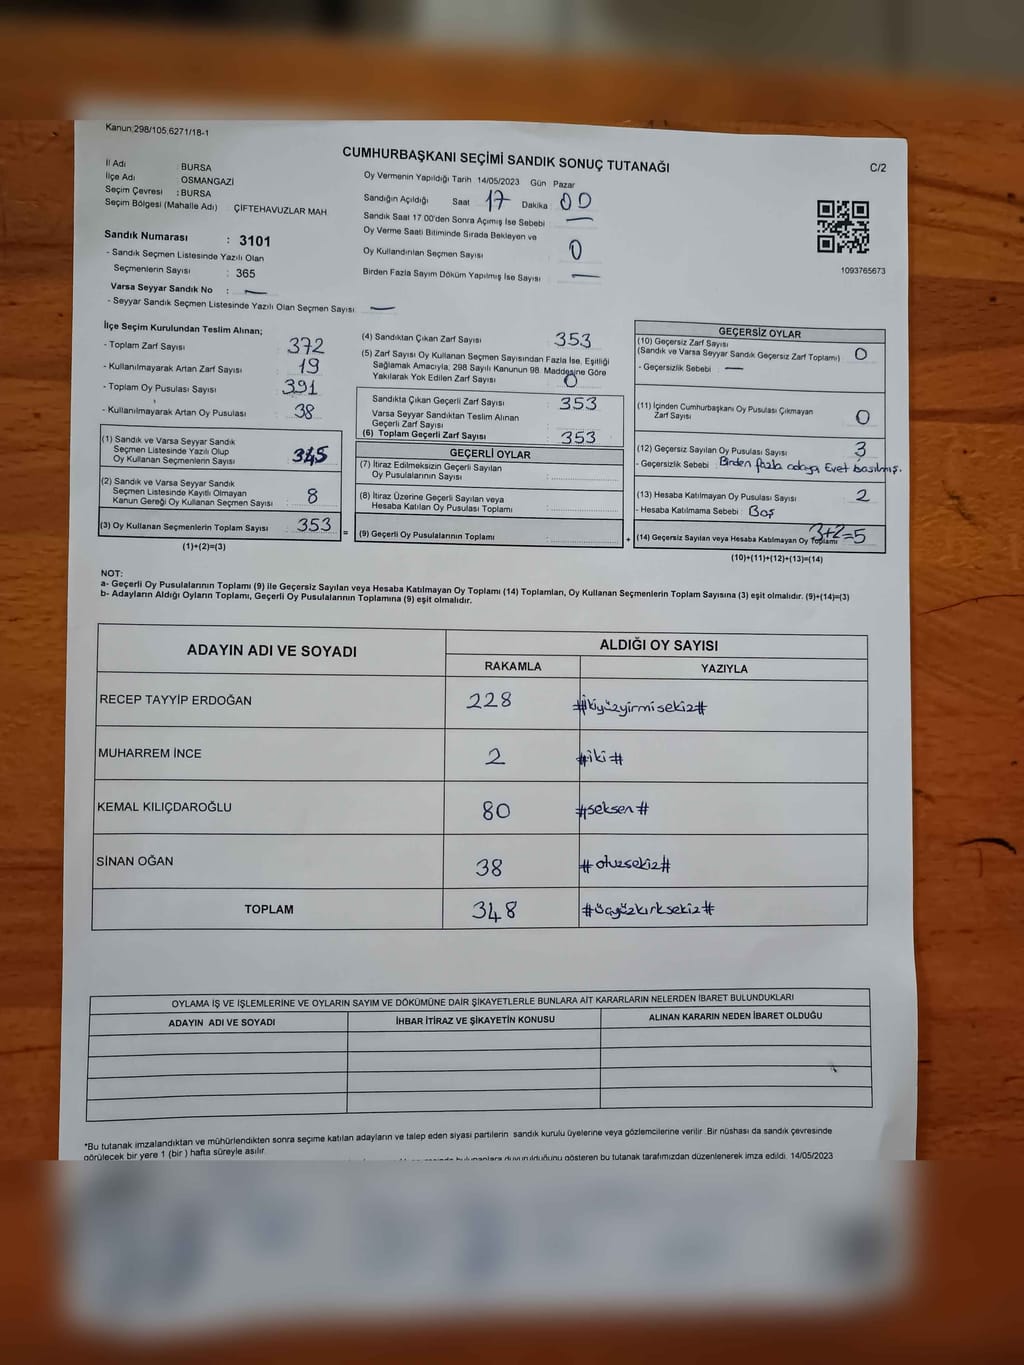 Kanun:298/105;6271/18-1
CUMHURBAŞKANI SEÇİMİ SANDIK SONUÇ TUTANAĞI
C/2
İl Adı : BURSA
İlçe Adı : OSMANGAZİ
Seçim Çevresi : BURSA
Seçim Bölgesi (Mahalle Adı) ÇİFTEHAVUZLAR MAH
Sandık Numarası : 3101
- Sandık Seçmen Listesinde Yazılı Olan
Seçmenlerin Sayısı : 365
Varsa Seyyar Sandık No : —
- Seyyar Sandık Seçmen Listesinde Yazılı Olan Seçmen Sayısı: —
Oy Vermenin Yapıldığı Tarih 14/05/2023 Gün Pazar
Sandığın Açıldığı Saat 17 Dakika 00
Sandık Saat 17:00'den Sonra Açımış İse Sebebi : —
Oy Verme Saati Bitiminde Sırada Bekleyen ve
Oy Kullandırılan Seçmen Sayısı : 0
Birden Fazla Sayım Döküm Yapılmış İse Sayısı : —
1093765673
İlçe Seçim Kurulundan Teslim Alınan;
- Toplam Zarf Sayısı : 372
- Kullanılmayarak Artan Zarf Sayısı : 19
- Toplam Oy Pusulası Sayısı : 391
- Kullanılmayarak Artan Oy Pusulası : 38
(1) Sandık ve Varsa Seyyar Sandık
Seçmen Listesinde Yazılı Olup
Oy Kullanan Seçmenlerin Sayısı : 345
(2) Sandık ve Varsa Seyyar Sandık
Seçmen Listesinde Kayıtlı Olmayan
Kanun Gereği Oy Kullanan Seçmen Sayısı : 8
(3) Oy Kullanan Seçmenlerin Toplam Sayısı : 353
=
(1)+(2)=(3)
(4) Sandıktan Çıkan Zarf Sayısı : 353
(5) Zarf Sayısı Oy Kullanan Seçmen Sayısından Fazla İse, Eşitliği
Sağlamak Amacıyla, 298 Sayılı Kanunun 98. Maddesine Göre
Yakılarak Yok Edilen Zarf Sayısı : 0
Sandıkta Çıkan Geçerli Zarf Sayısı : 353
Varsa Seyyar Sandıktan Teslim Alınan
Geçerli Zarf Sayısı :
(6) Toplam Geçerli Zarf Sayısı : 353
GEÇERLİ OYLAR
(7) İtiraz Edilmeksizin Geçerli Sayılan
Oy Pusulalarının Sayısı :
(8) İtiraz Üzerine Geçerli Sayılan veya
Hesaba Katılan Oy Pusulası Toplamı :
(9) Geçerli Oy Pusulalarının Toplamı :
+
GEÇERSİZ OYLAR
(10) Geçersiz Zarf Sayısı
(Sandık ve Varsa Seyyar Sandık Geçersiz Zarf Toplamı) : 0
- Geçersizlik Sebebi : —
(11) İçinden Cumhurbaşkanı Oy Pusulası Çıkmayan
Zarf Sayısı : 0
(12) Geçersiz Sayılan Oy Pusulası Sayısı : 3
- Geçersizlik Sebebi : Birden fazla adaya Evet basılmış.
(13) Hesaba Katılmayan Oy Pusulası Sayısı : 2
- Hesaba Katılmama Sebebi : Boş
(14) Geçersiz Sayılan veya Hesaba Katılmayan Oy Toplamı 3+2=5
(10)+(11)+(12)+(13)=(14)
NOT:
a- Geçerli Oy Pusulalarının Toplamı (9) ile Geçersiz Sayılan veya Hesaba Katılmayan Oy Toplamı (14) Toplamları, Oy Kullanan Seçmenlerin Toplam Sayısına (3) eşit olmalıdır. (9)+(14)=(3)
b- Adayların Aldığı Oyların Toplamı, Geçerli Oy Pusulalarının Toplamına (9) eşit olmalıdır.
ADAYIN ADI VE SOYADI
ALDIĞI OY SAYISI
RAKAMLA YAZIYLA
RECEP TAYYİP ERDOĞAN 228 #ikiyüzyirmisekiz#
MUHARREM İNCE 2 #iki#
KEMAL KILIÇDAROĞLU 80 #seksen#
SİNAN OĞAN 38 #otuzsekiz#
TOPLAM 348 #üçyüzkırksekiz#
OYLAMA İŞ VE İŞLEMLERİNE VE OYLARIN SAYIM VE DÖKÜMÜNE DAİR ŞİKAYETLERLE BUNLARA AİT KARARLARIN NELERDEN İBARET BULUNDUKLARI
ADAYIN ADI VE SOYADI İHBAR İTİRAZ VE ŞİKAYETİN KONUSU ALINAN KARARIN NEDEN İBARET OLDUĞU
*Bu tutanak imzalandıktan ve mühürlendikten sonra seçime katılan adayların ve talep eden siyasi partilerin sandık kurulu üyelerine veya gözlemcilerine verilir. Bir nüshası da sandık çevresinde
görülecek bir yere 1 (bir) hafta süreyle asılır.
bulunanlara duyurulduğunu gösteren bu tutanak tarafımızdan düzenlenerek imza edildi. 14/05/2023